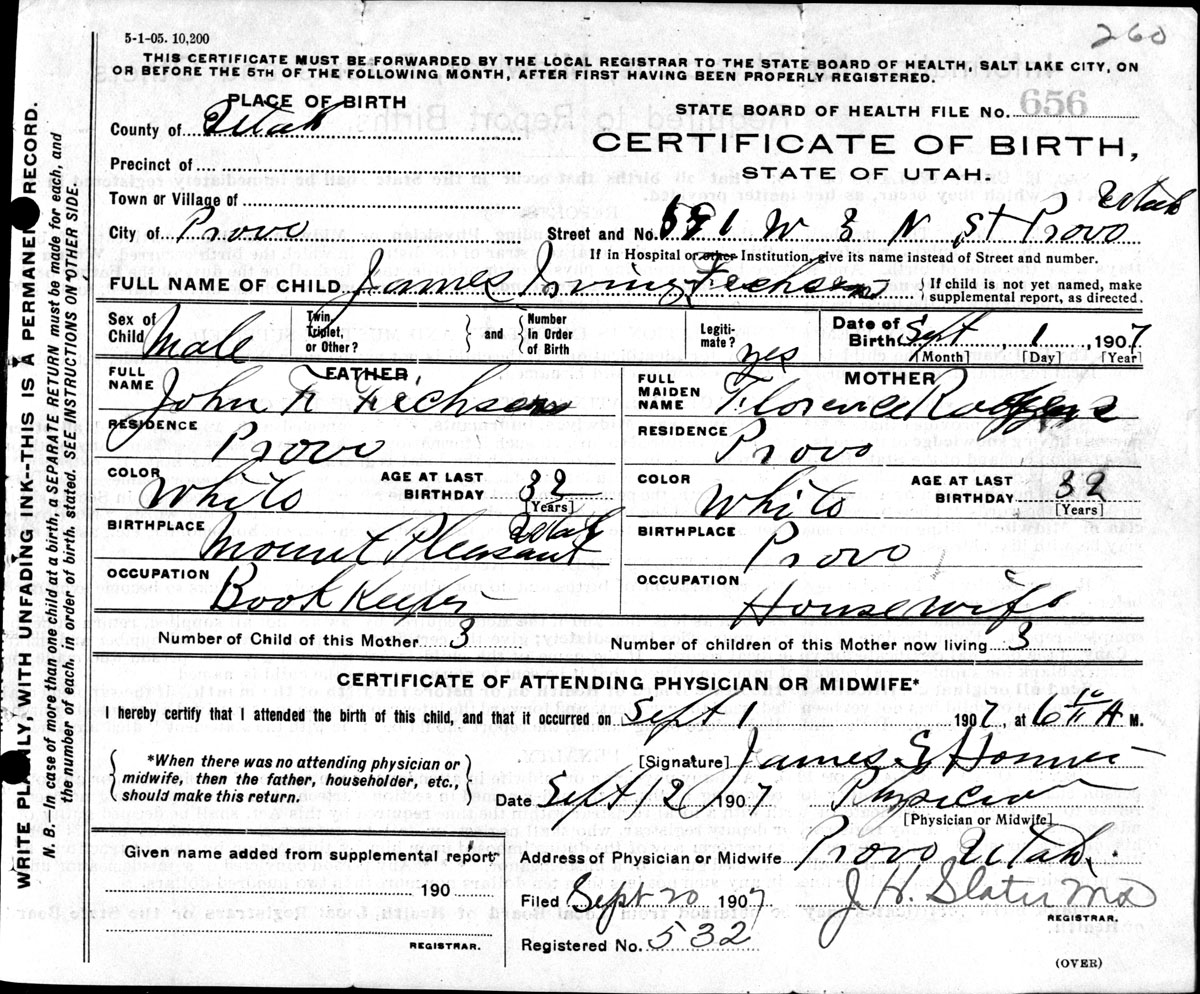 260
5-1-05. 10,200
THIS CERTIFICATE MUST BE FORWARDED BY THE LOCAL REGISTRAR TO THE STATE BOARD OF HEALTH, SALT LAKE CITY, ON
OR BEFORE THE 5TH OF THE FOLLOWING MONTH, AFTER FIRST HAVING BEEN PROPERLY REGISTERED.
WRITE PLAINLY, WITH UNFADING INK--THIS IS A PERMANENT RECORD.
N. B.--In case of more than one child at a birth, a SEPARATE RETURN must be made for each, and
the number of each, in order of birth, stated. SEE INSTRUCTIONS ON OTHER SIDE.
PLACE OF BIRTH
County of Utah
Precinct of
Town or Village of
City of Provo
STATE BOARD OF HEALTH FILE No. 656
CERTIFICATE OF BIRTH,
STATE OF UTAH.
Street and No. W N St Provo Utah
If in Hospital or other Institution, give its name instead of Street and number.
FULL NAME OF CHILD James Irving
If child is not yet named, make
supplemental report, as directed.
Sex of Child Male
Twin, Triplet, or Other?
and
Number in Order of Birth
Legiti-mate? yes
Date of Birth Sept 1 1907
[Month] [Day] [Year]
FATHER
FULL NAME John F
RESIDENCE Provo
COLOR White
AGE AT LAST BIRTHDAY 33
[Years]
BIRTHPLACE Mount Pleasant Utah
OCCUPATION Book Keeper
MOTHER
FULL MAIDEN NAME Florence
RESIDENCE Provo
COLOR White
AGE AT LAST BIRTHDAY 32
[Years]
BIRTHPLACE Provo
OCCUPATION Housewife
Number of Child of this Mother 3
Number of children of this Mother now living 3
CERTIFICATE OF ATTENDING PHYSICIAN OR MIDWIFE*
I hereby certify that I attended the birth of this child, and that it occurred on Sept 1 1907, at 6 A M.
*When there was no attending physician or
midwife, then the father, householder, etc.,
should make this return.
[Signature] James
Date Sept 12 1907 Physician
[Physician or Midwife]
Given name added from supplemental report
190
REGISTRAR.
Address of Physician or Midwife Provo Utah.
Filed Sept 20 1907 J. H. Slater MD
REGISTRAR.
Registered No. 532
(OVER)